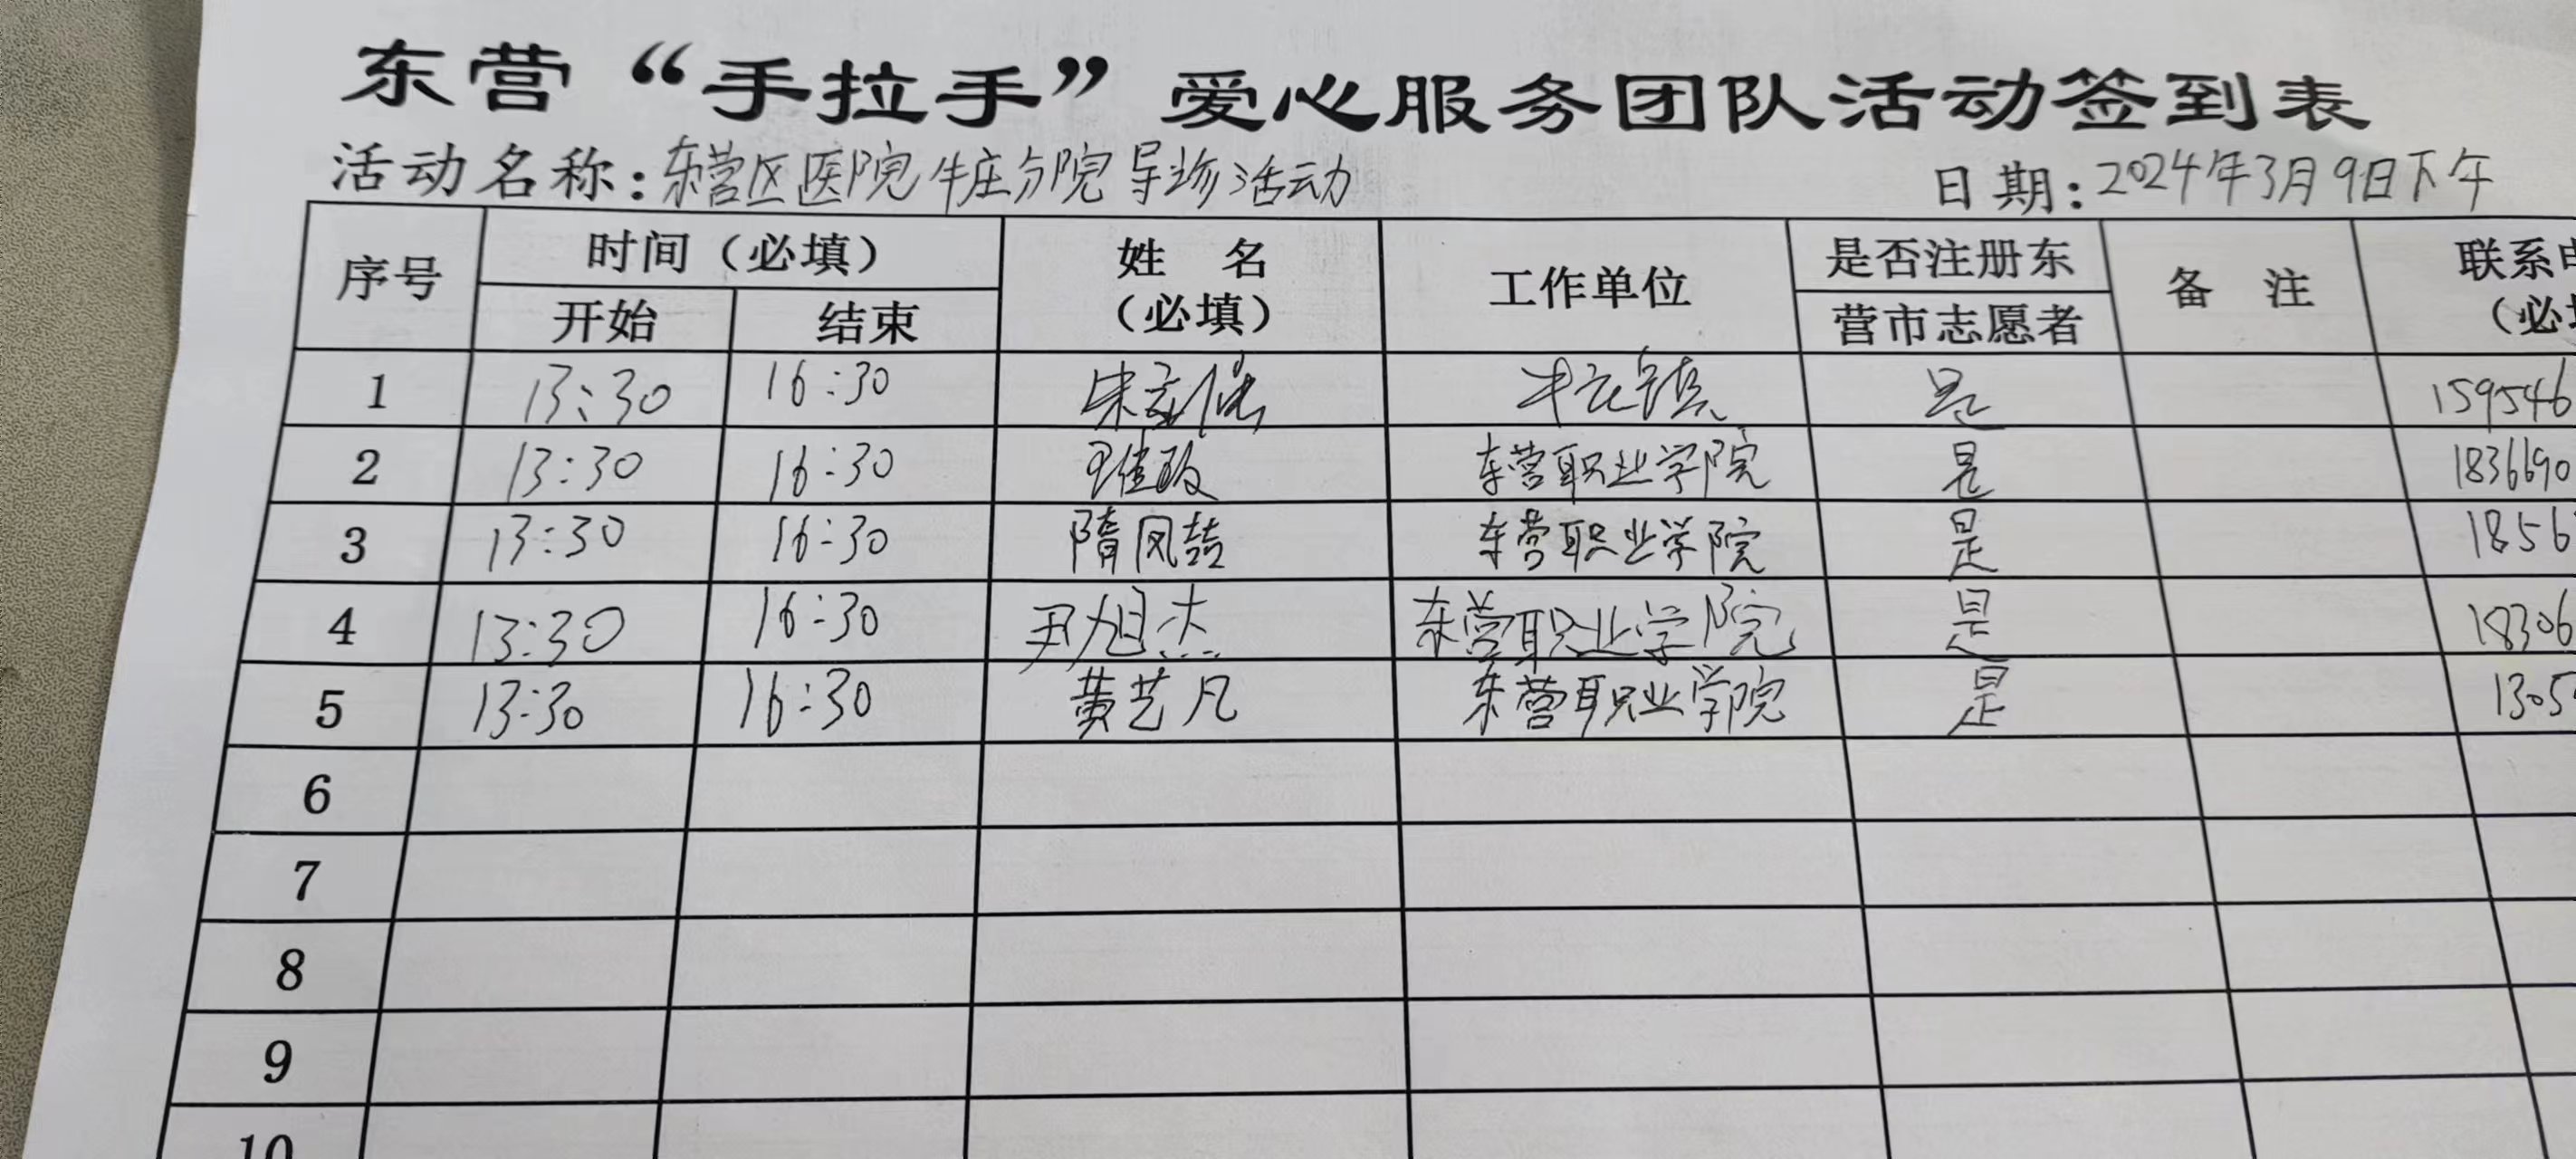 东营“手拉手”爱心服务团队活动签到表
活动名称：东营区医院牛庄分院导珍活动 日期：2024年3月9日下午
序号 时间（必填） 姓 名 工作单位 是否注册东 备 注 联系
开始 结束 （必填） 营市志愿者 （必
1 13:30 16:30 牛庄镇 是 159546
2 13:30 16:30 东营职业学院 是 1836690
3 13:30 16:30 隋凤喆 东营职业学院 是 1856
4 13:30 16:30 尹旭杰 东营职业学院 是 18306
5 13:30 16:30 黄艺凡 东营职业学院 是 1305
6
7
8
9
10